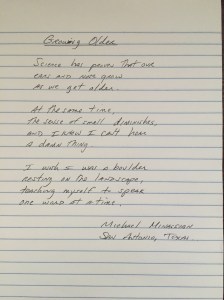 Growing Older
Science has proven that our
ears and nose grow
as we get older.
At the same time,
the sense of smell diminishes,
and I know I can't hear
a damn thing.
I wish I was a boulder
resting on the landscape,
teaching myself to speak
one word at a time.
Michael Minassian
San Antonio, Texas